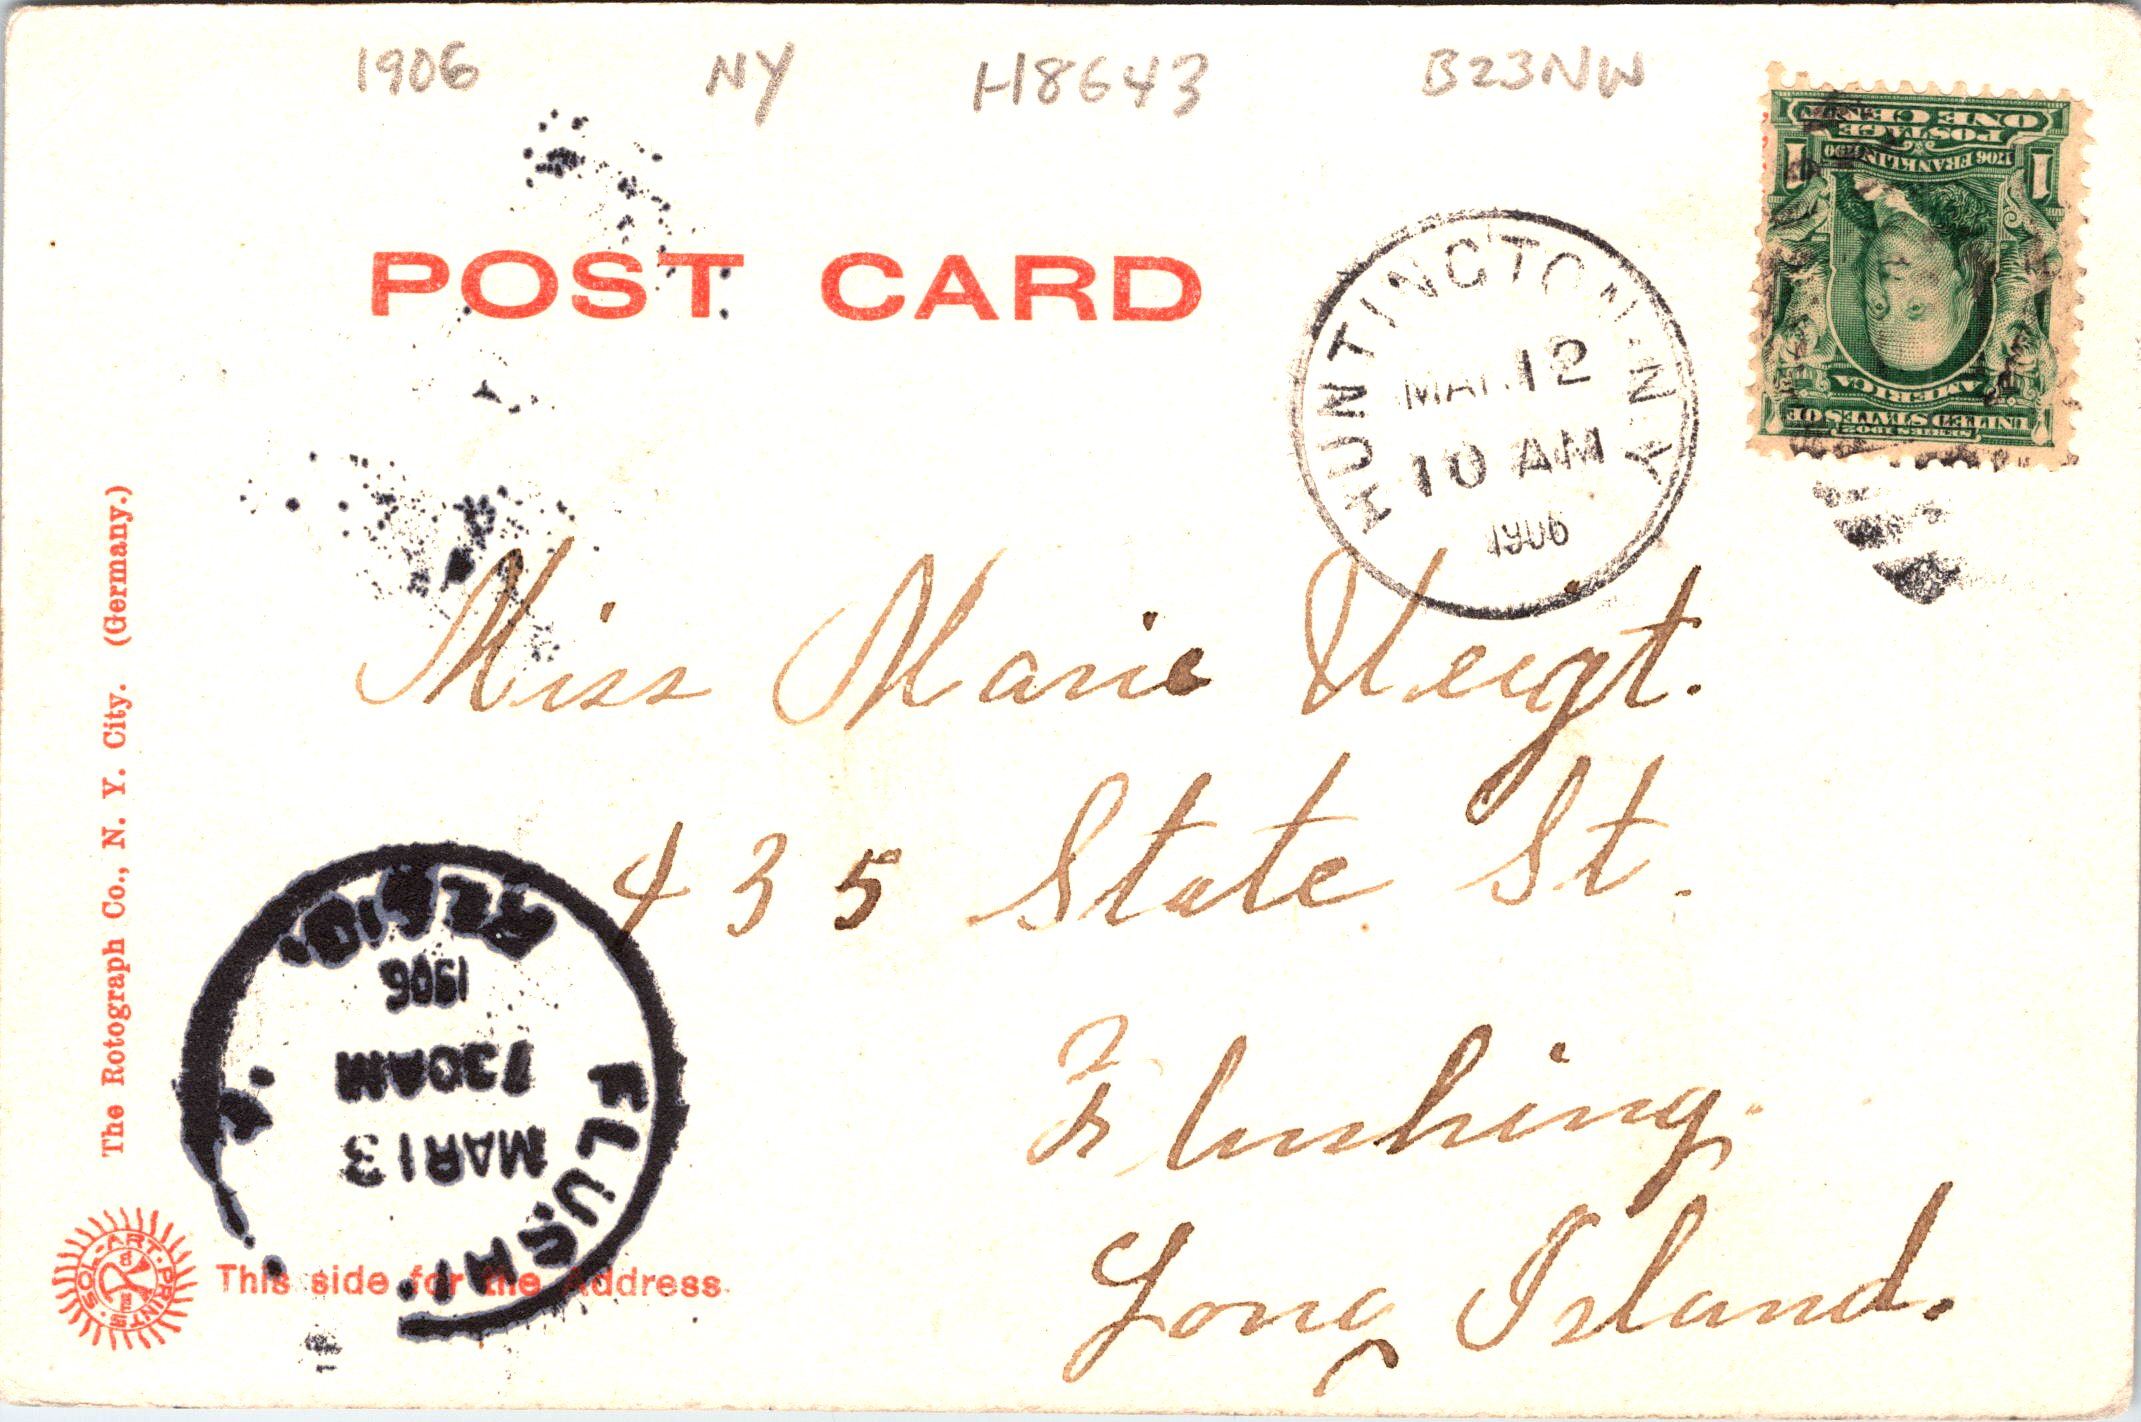 1906 NY H8643 B23NW
POST CARD
HUNTINGTON N.Y.
MAR 12
10 AM
1906
ONE CENT
POSTAGE
1706 FRANKLIN 1790
1 1
AMERICA
UNITED STATES OF
SERIES 1902
Miss Marie Veigt.
435 State St.
Flushing.
Long Island.
The Rotograph Co., N. Y. City. (Germany.)
FLUSHI
MAR 13
730AM
1906
SOL-ART-PRINTS
This side for the Address.